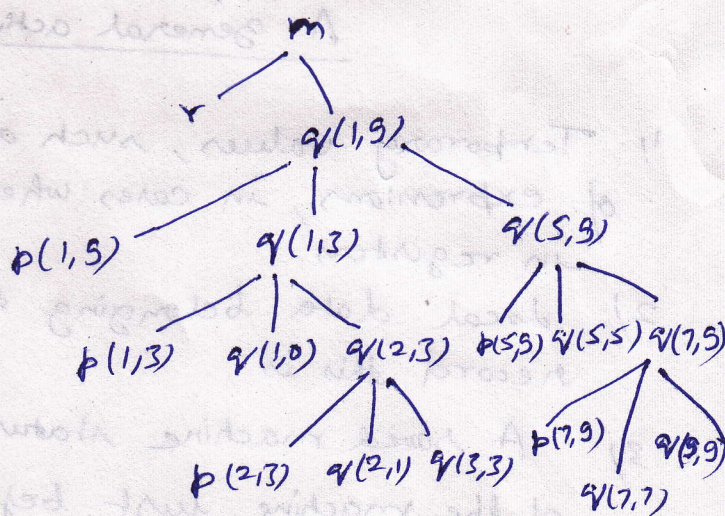 m
r
q(1,9)
p(1,9) q(1,3) q(5,9)
p(1,3) q(1,0) q(2,3) p(5,9) q(5,5) q(7,9)
p(2,3) q(2,1) q(3,3) p(7,9) q(9,9)
q(7,7)